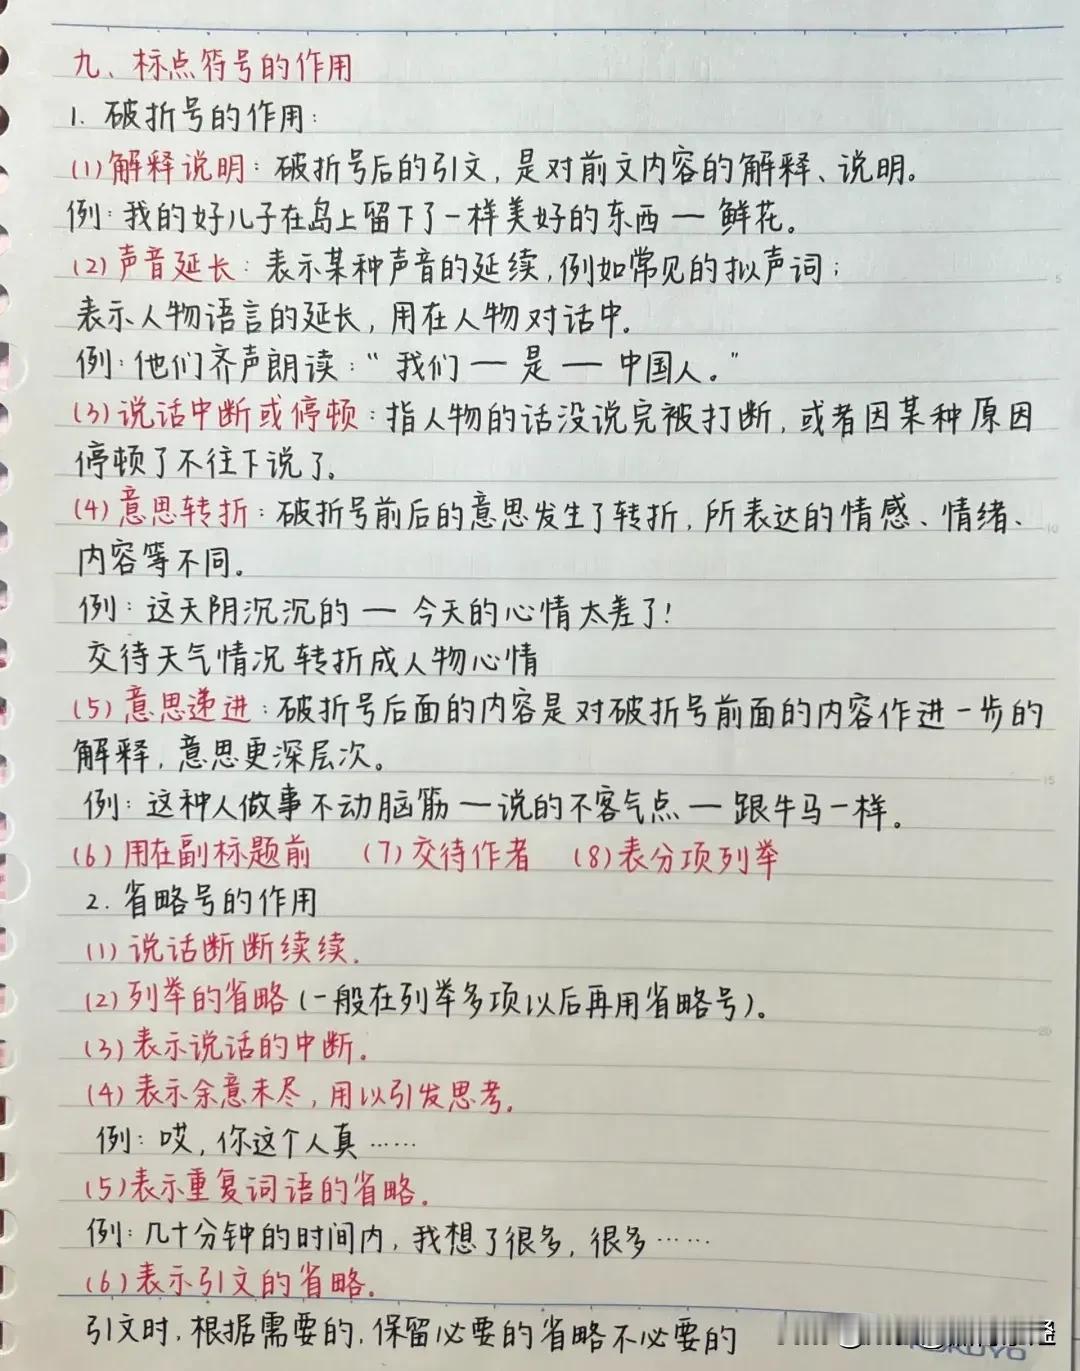 九、标点符号的作用
1. 破折号的作用:
(1)解释说明:破折号后的引文,是对前文内容的解释、说明。
例:我的好儿子在岛上留下了一样美好的东西一鲜花。
(2)声音延长:表示某种声音的延续,例如常见的拟声词;
表示人物语言的延长,用在人物对话中.
例:他们齐声朗读:“我们一是一中国人。”
(3)说话中断或停顿:指人物的话没说完被打断,或者因某种原因
停顿了不往下说了.
(4)意思转折:破折号前后的意思发生了转折,所表达的情感、情绪、
内容等不同。
例:这天阴沉沉的一今天的心情太差了!
交待天气情况转折成人物心情
(5)意思递进:破折号后面的内容是对破折号前面的内容作进一步的
解释,意思更深层次。
例:这种人做事不动脑筋一说的不客气点一跟牛马一样。
(6)用在副标题前 (7)交待作者 (8)表分项列举
2.省略号的作用
(1)说话断断续续.
(2)列举的省略(一般在列举多项以后再用省略号)。
(3)表示说话的中断.
(4)表示余意未尽,用以引发思考.
例:哎,你这个人真……
(5)表示重复词语的省略.
例:几十分钟的时间内,我想了很多,很多……
(6)表示引文的省略.
引文时,根据需要的,保留必要的省略不必要的
5
10
15
20